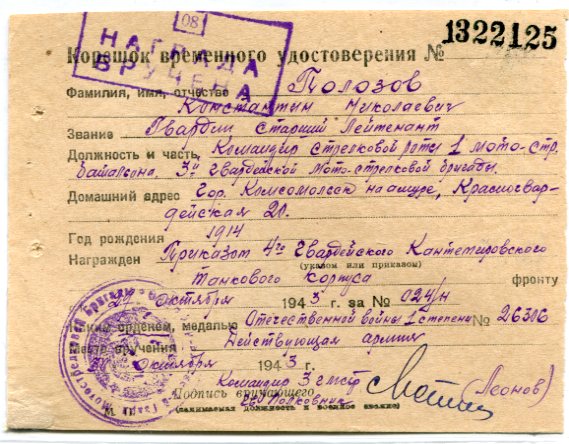 08
НАГРАДА
ВРУЧЕНА
Корешок временного удостоверения № 1322125
Фамилия, имя, отчество Полозов
Константин Николаевич
Звание Гвардии старший лейтенант
Должность и часть, Командир стрелковой роты 1 мото-стр.
батальона, 3й гвардейской мото-стрелковой бригады.
Домашний адрес Гор. Комсомольск на амуре, Красногвар-
дейская 20.
Год рождения 1914
Награжден Приказом 4го Гвардейского Кантемировского
(указом или приказом)
танкового корпуса фронту
октября 1943 г. за № 024/н
орденом, медалью Отечественной войны 1 степени № 26306
Место вручения Действующая армия
октября 1943 г.
Командир 3 гмстр
Подпись вручающего (Леонов)
Гв. Полковник
(занимаемая должность и воинское звание)